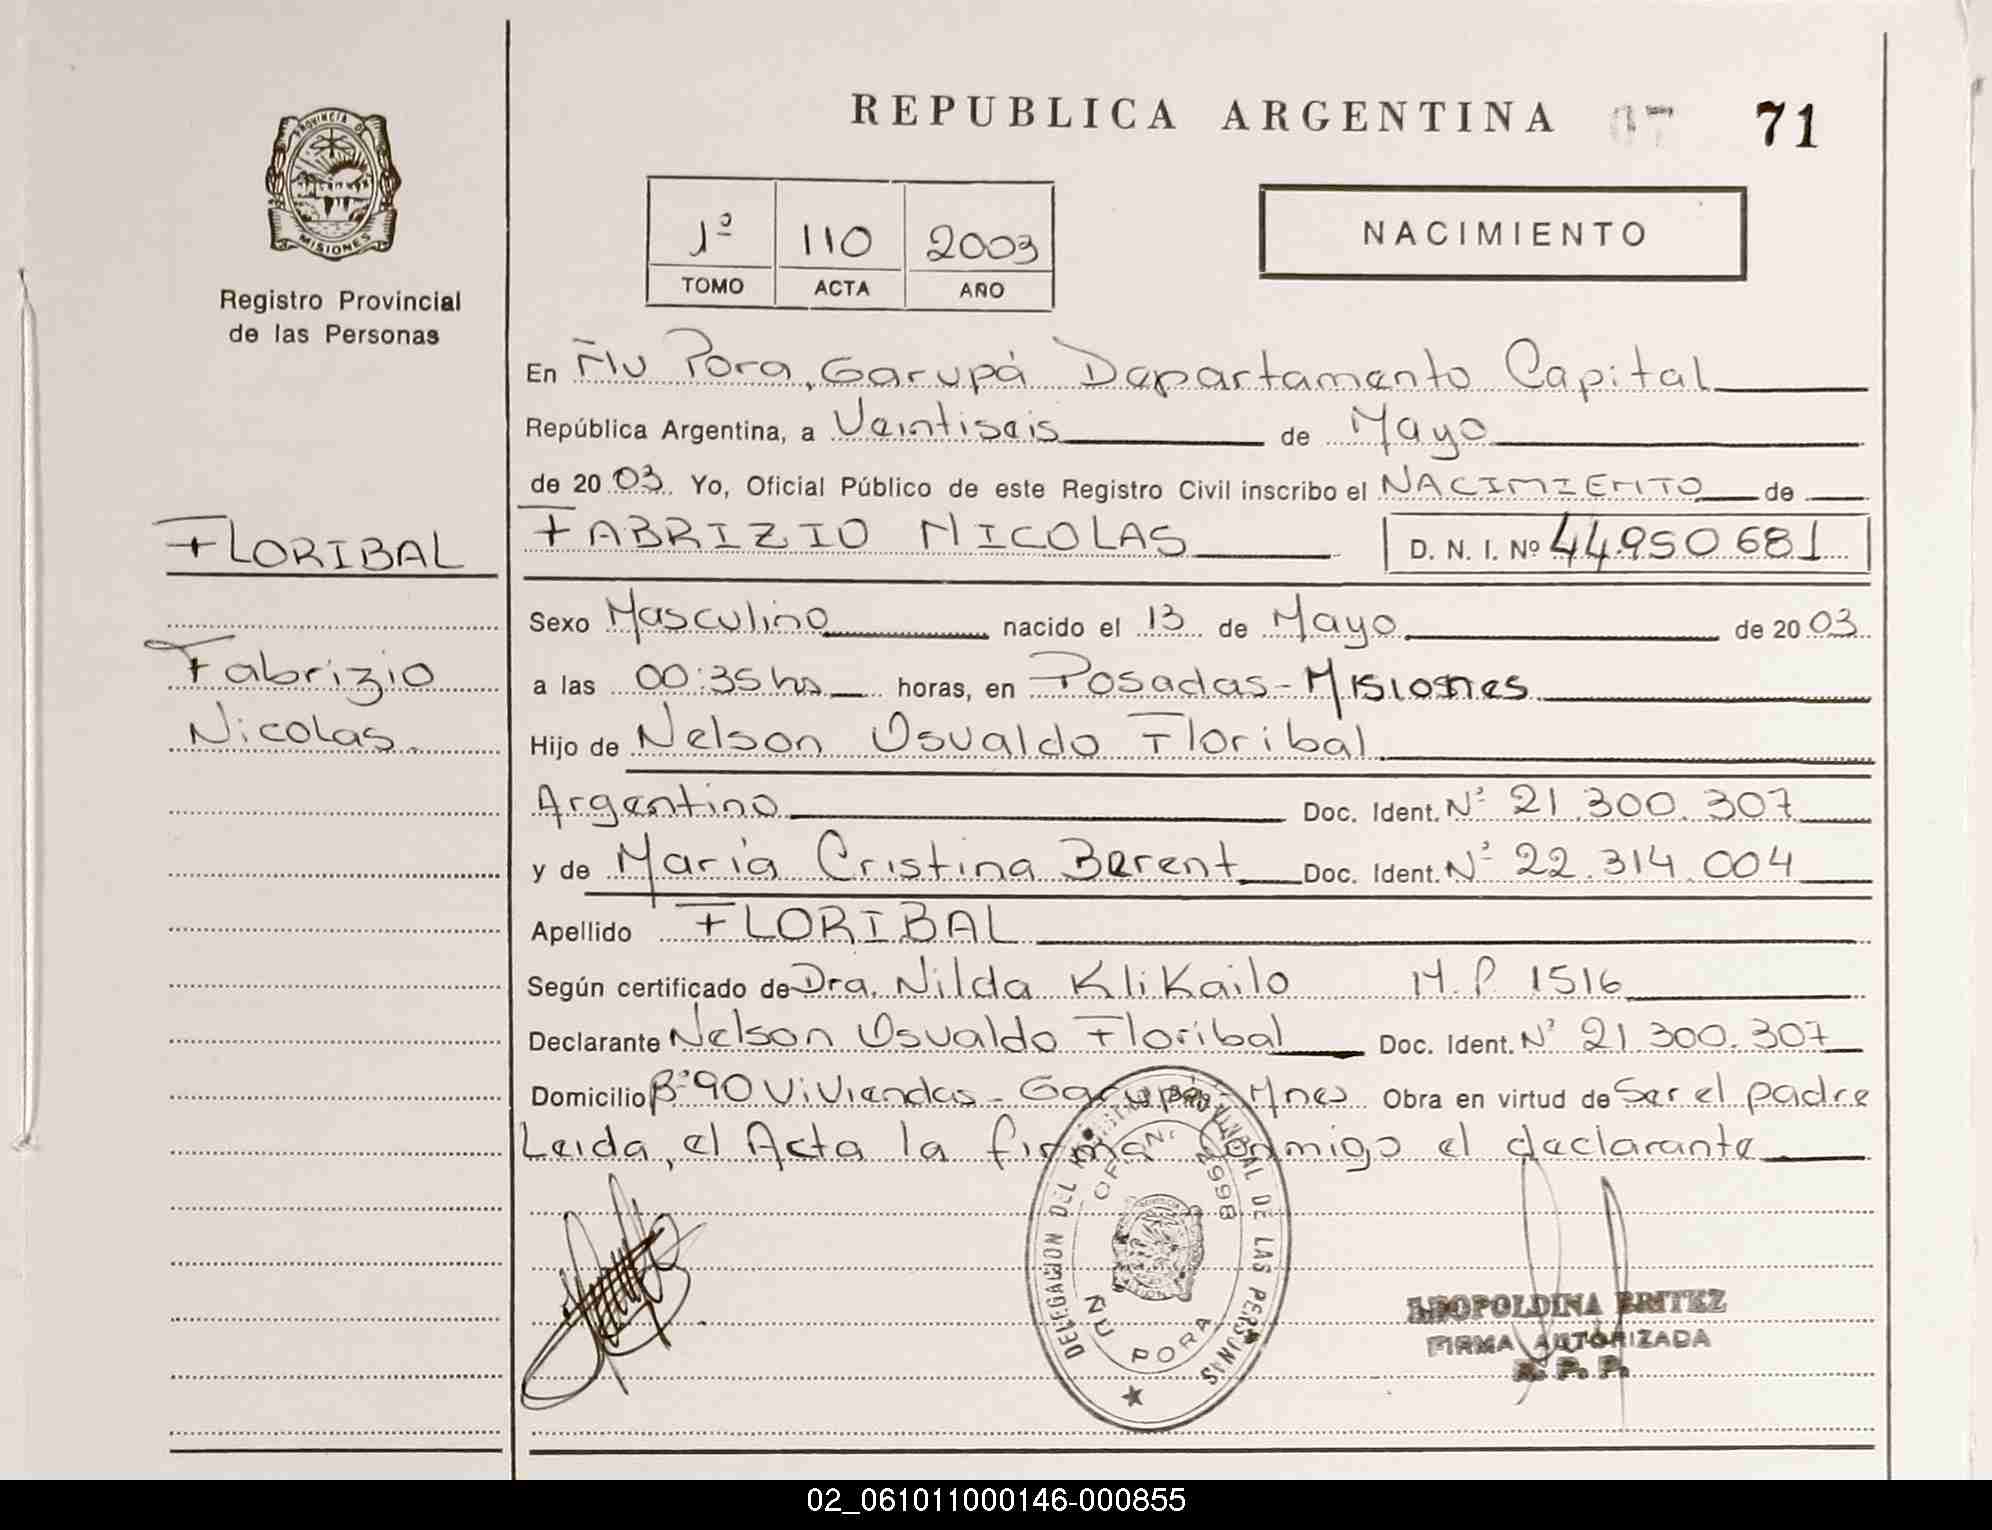 REPUBLICA ARGENTINA 71
PROVINCIA DE
MISIONES
Registro Provincial
de las Personas
1º 110 2003
TOMO ACTA AÑO
NACIMIENTO
En Ñu Pora, Garupá Departamento Capital
República Argentina, a Veintiseis de Mayo
de 2003 Yo, Oficial Público de este Registro Civil inscribo el NACIMIENTO de
FLORIBAL
FABRIZIO NICOLAS D. N. I. Nº 44.950681
Sexo Masculino nacido el 13 de Mayo de 2003
Fabrizio
Nicolas.
a las 00:35 hs horas, en Posadas - Misiones
Hijo de Nelson Osvaldo Floribal
Argentino Doc. Ident. Nº 21.300.307
y de María Cristina Berent Doc. Ident. Nº 22.314.004
Apellido FLORIBAL
Según certificado de Dra. Nilda KliKailo M.P 1516
Declarante Nelson Osvaldo Floribal Doc. Ident. Nº 21.300.307
Domicilio Bº 90 Viviendas - Garupá - Mnes Obra en virtud de Ser el padre
Leida, el Acta la firma conmigo el declarante
DELEGACION DEL REGISTRO PROVINCIAL DE LAS PERSONAS
OF. N. 2998
ÑU PORA
LEOPOLDINA BRITEZ
FIRMA AUTORIZADA
R. P. P.
02_061011000146-000855